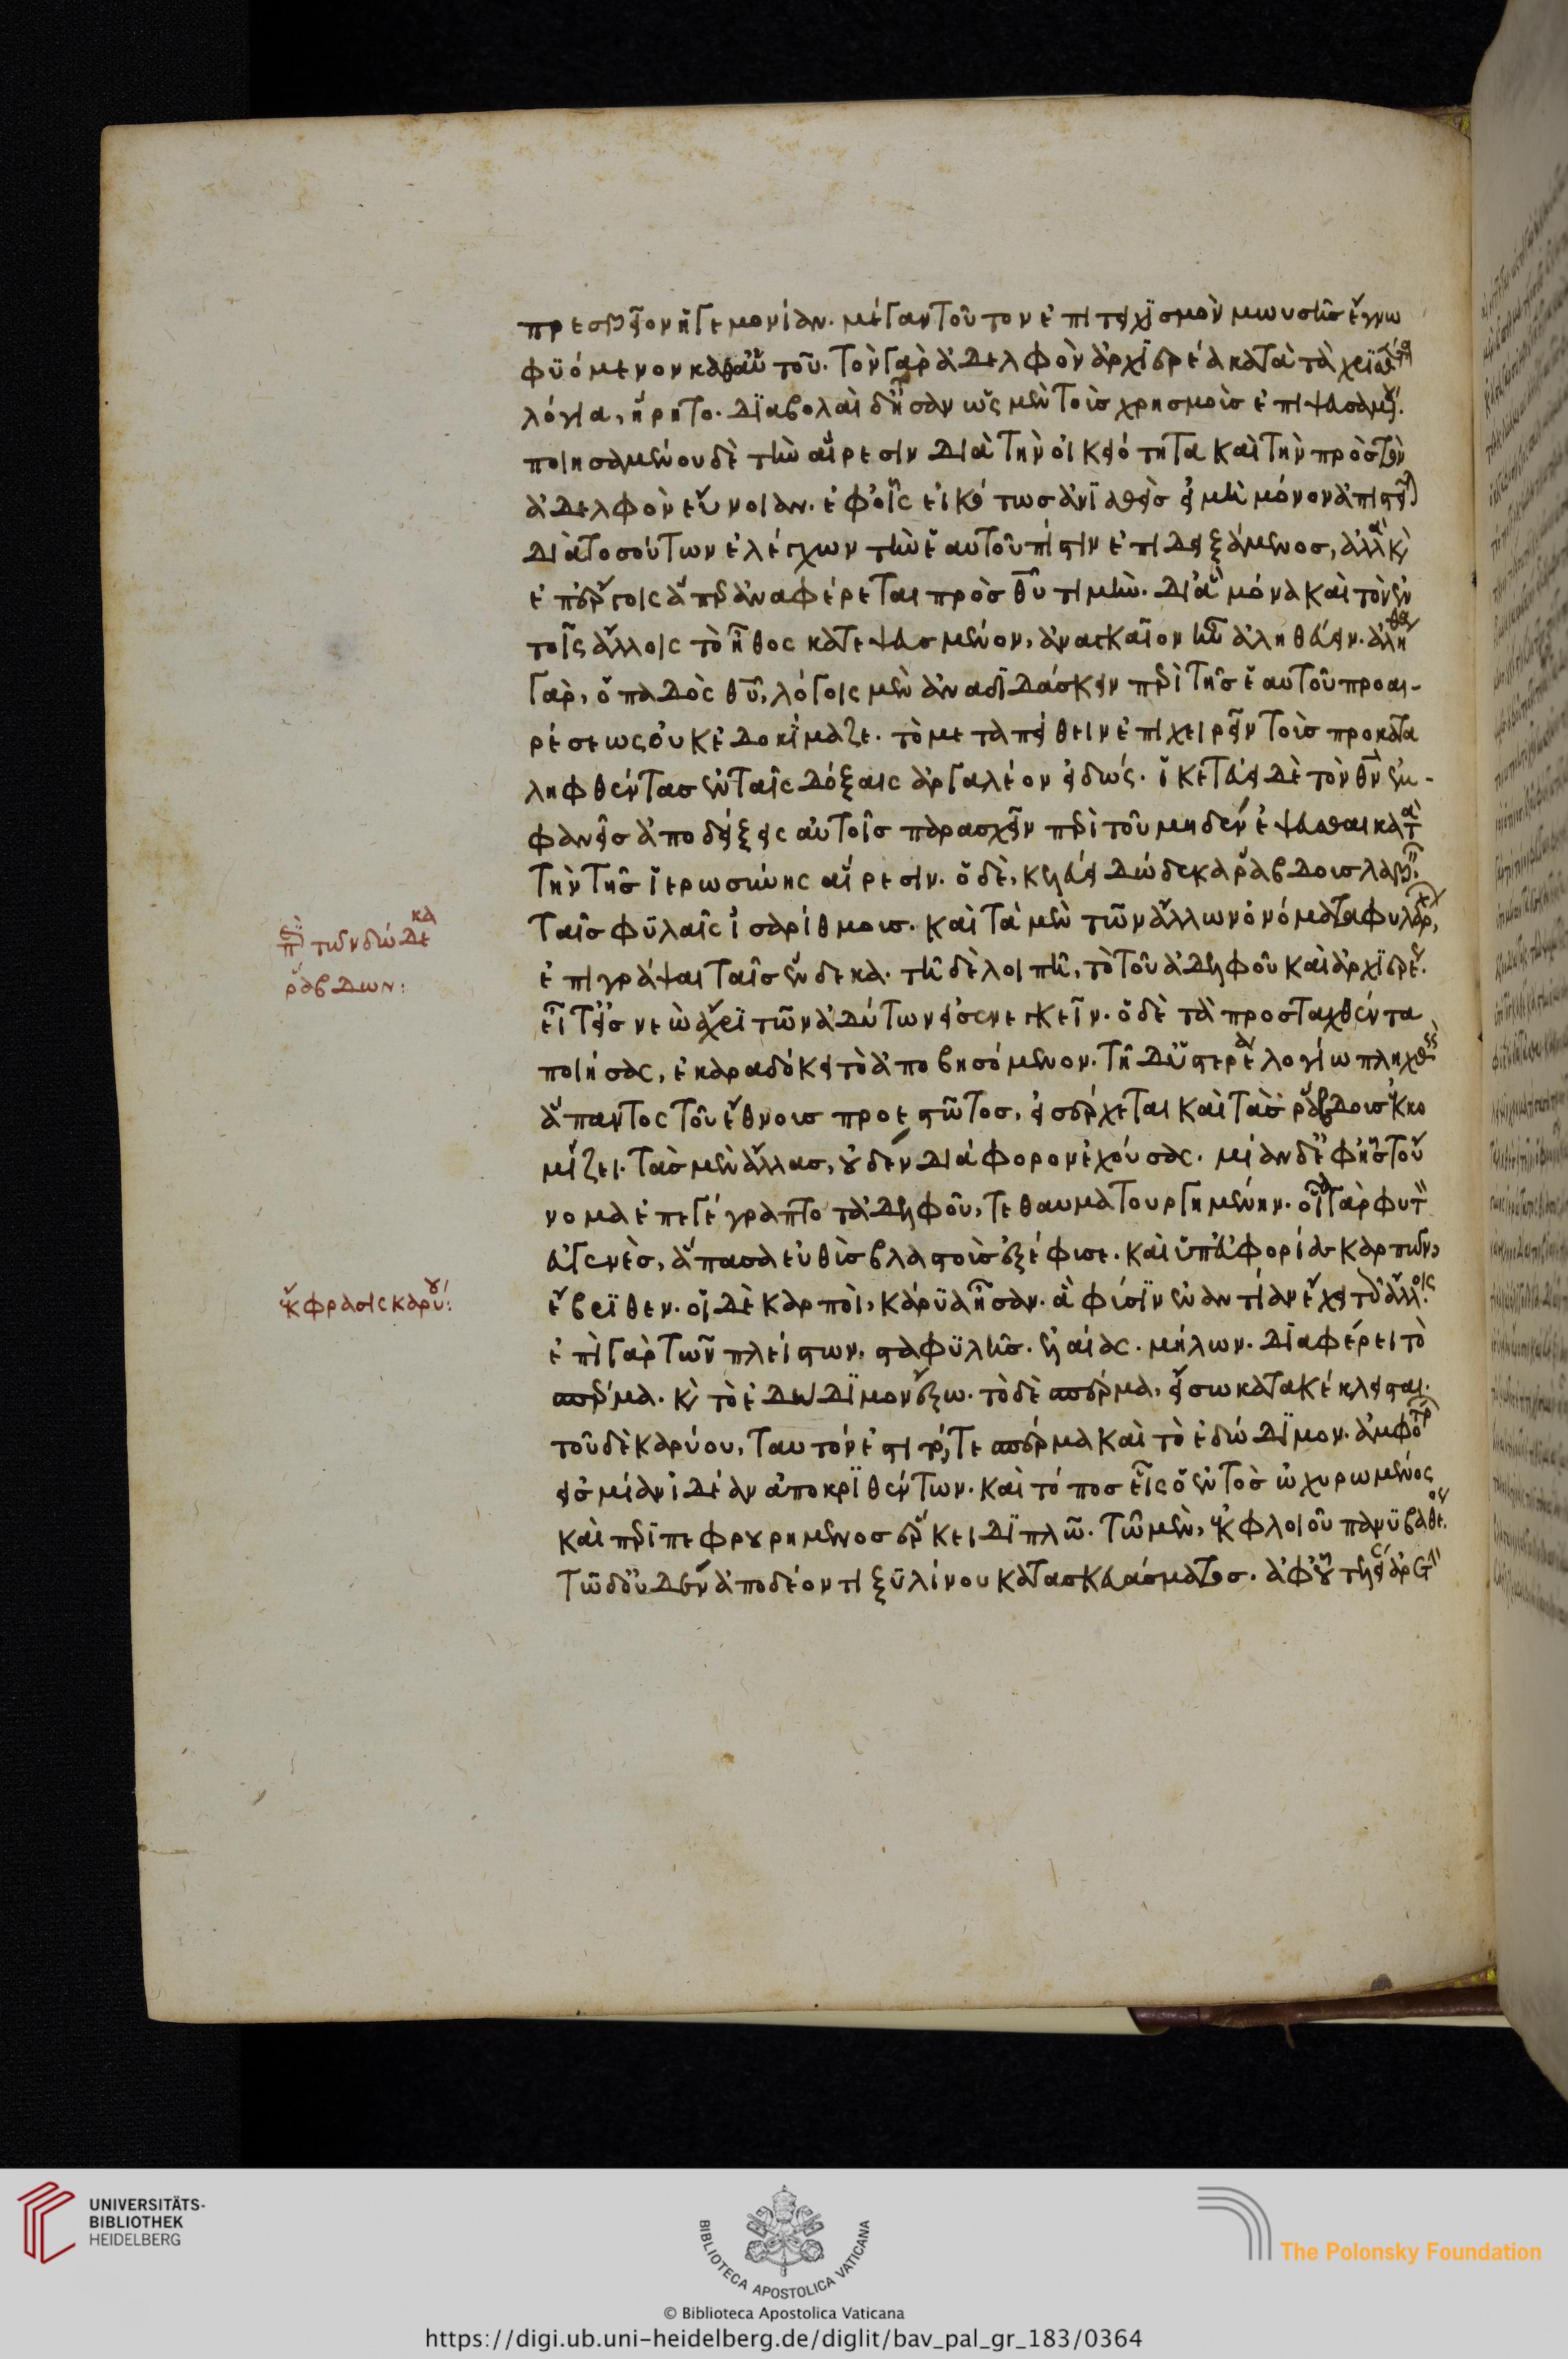 πρεσβεῖον ἡγεμονίαν. μέγαν τοῦτον ἐπιτειχισμὸν μωυσῆς ἔγνω
φυόμενον καθ αὑτοῦ. τὸν γὰρ ἀδελφὸν ἀρχιερέα κατὰ τὰ χρησθέντα
λόγια, ᾕρητο. διαβολαὶ δ' ἦσαν ὡς μὲν τοῖς χρησμοῖς ἐπιψευσαμένου.
ποιησαμένου δὲ τὴν αἵρεσιν διὰ τὴν οἰκειότητα καὶ τὴν πρὸς τὸν
ἀδελφὸν εὔνοιαν. ἐφ' οἷς εἰκότως ἀνιαθεὶς εἰ μὴ μόνον ἀπιστεῖται
διὰ τοσούτων ἐλέγχων τὴν ἑαυτοῦ πίστιν ἐπιδειξάμενος, ἀλλὰ καὶ
ἐπ' ἔργοις ἅπερ ἀναφέρεται πρὸς θυ τιμήν. δι' ἃ μόνα καὶ τὸν ἐν
τοῖς ἄλλοις τὸ ἦθος κατεψευσμένον, ἀναγκαῖον ἦν ἀληθεύειν. ἀλήθεια
γὰρ, ὀπαδὸς θυ, λόγοις μὲν ἀναδιδάσκειν περὶ τῆς ἑαυτοῦ προαι-
ρέσεως οὐκ ἐδοκίμαζε. τὸ μεταπείθειν ἐπιχειρεῖν τοῖς προκατα
ληφθέντας ἐν ταῖς δόξαις ἀργαλέον εἰδώς. ἱκετεύει δὲ τὸν θν ἐμ-
φανεῖς ἀποδείξεις αὐτοῖς παρασχεῖν περὶ τοῦ μηδὲν ἐψεῦσθαι κατὰ
τὴν τῆς ἱερωσύνης αἵρεσιν. ὁ δὲ, κελεύει δώδεκα ῥάβδους λαβεῖν
ταῖς φυλαῖς ἰσαρίθμους. καὶ τὰ μὲν τῶν ἄλλων ὀνόματα φυλάρχων,
ἐπιγράψαι ταῖς ἕνδεκα. τῇ δὲ λοιπῇ, τὸ τοῦ ἀδελφοῦ καὶ ἀρχιερέως.
εἶτ' εἰς νεὼ ἄχρι τῶν ἀδύτων εἰσενεγκεῖν. ὁ δὲ τὰ προσταχθέντα
ποιήσας, ἐκαραδόκει τὸ ἀποβησόμενον. τῇ δ' ὑστεραίᾳ λογίω πληχθεὶς
ἅπαντος τοῦ ἔθνους προεστῶτος, εἰσέρχεται καὶ τὰς ῥάβδους ἐκκο
μίζει. τὰς μὲν ἄλλας, οὐδὲν διάφορον ἐχούσας. μίαν δ' ἐφ' ἧς τοὔ
νομα ἐπεγέγραπτο τἀδελφοῦ, τεθαυματουργημένην. οἷα γὰρ φυτὸν
εὐγενὲς, ἅπασα εὐθὺς βλαστοὺς ἐξέφυσε. καὶ ὑπ' εὐφορίας καρπῶν,
ἔβριθεν. οἱ δὲ καρποὶ, κάρυα ἦσαν. ἃ φύσιν ἐναντίαν ἔχει τοῖς ἄλλοις.
ἐπὶ γὰρ τῶν πλείστων, σταφυλῆς. ἐλαίας. μήλων. διαφέρει τὸ
σπέρμα. καὶ τὸ ἐδώδιμον ἔξω. τὸ δὲ σπέρμα, εἴσω κατακέκλεισται.
τοῦ δὲ καρύου, ταυτόν ἐστι τό, τε σπέρμα καὶ τὸ ἐδώδιμον. ἀμφοτέρων
εἰς μίαν ἰδέαν ἀποκριθέντων. καὶ τόπος εἷς ὁ ἐντὸς ὠχυρωμένος
καὶ περιπεφρουρημένος ἕρκει διπλῶ. τῶ μὲν, ἐκ φλοιοῦ πάνυ βαθέος.
τῶ δ' οὐδὲν ἀποδέοντι ξυλίνου κατασκευάσματος. ἀφ' οὗ τελείαν ἀρε
περὶ τῶν δώδεκα
ῥάβδων:
ἔκφρασις καρύου:
UNIVERSITÄTS-
BIBLIOTHEK
HEIDELBERG
BIBLIOTECA APOSTOLICA VATICANA
The Polonsky Foundation
© Biblioteca Apostolica Vaticana
https://digi.ub.uni-heidelberg.de/diglit/bav_pal_gr_183/0364